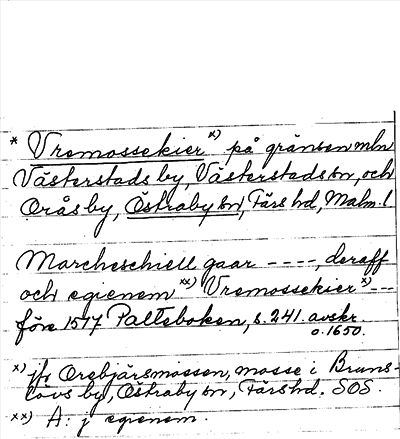 * Vremossekier x) på gränsen mln
Västerstads by, Västerstads sn, och
Orås by, Östraby sn, Färs hd, Malm. l
Marcheschiell gaar ----, deraff
och egienem xx) Vremossekier x) --
före 1517 Palteboken, s. 241. avskr.
o. 1650.
x) jfr Orebjärsmossen, mosse i Bruns-
lövs by, Östraby sn, Färs hd. SOS.
xx) A: j egienem.